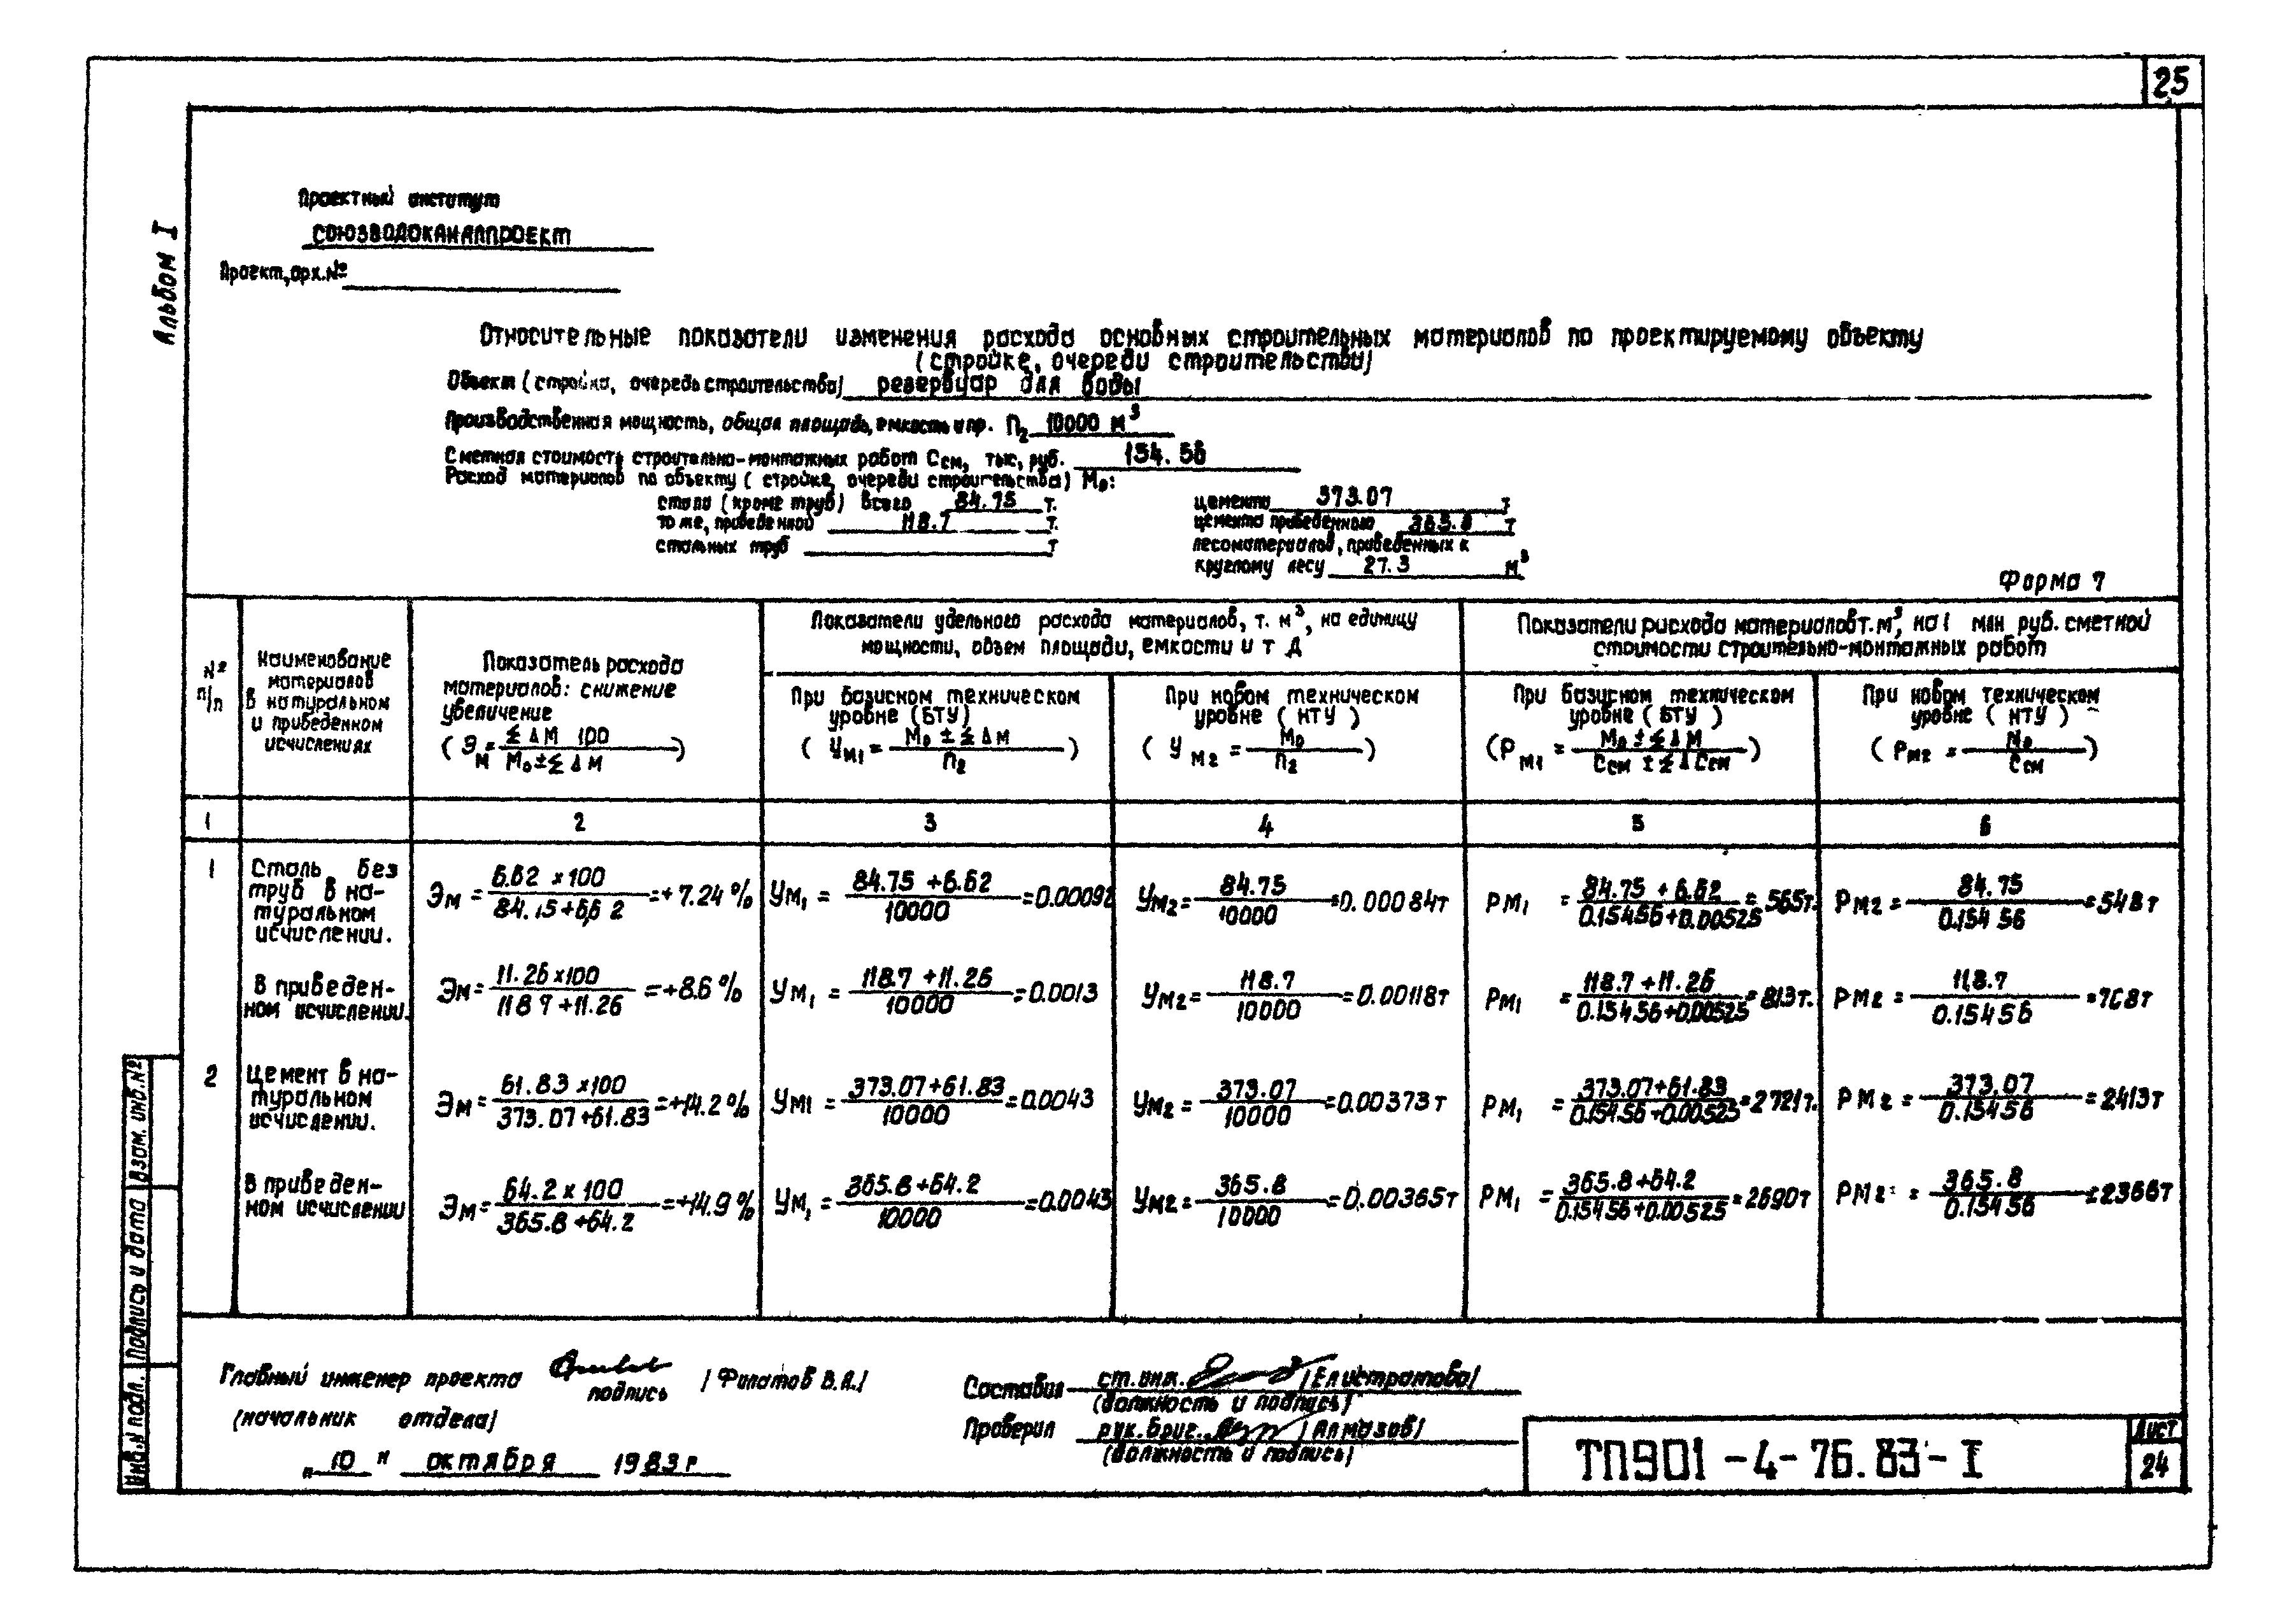 25
Альбом I
Проектный институт
СОЮЗВОДОКАНАЛПРОЕКТ
Проект, арх.№
Относительные показатели изменения расхода основных строительных материалов по проектируемому объекту
(стройке, очереди строительства)
Объект (стройка, очередь строительства) резервуар для воды
Производственная мощность, общая площадь, емкость и пр. П2 10000 м³
Сметная стоимость строительно-монтажных работ Ссм, тыс, руб. 154.56
Расход материалов по объекту ( стройке, очереди строительства) Мо:
стали (кроме труб) всего 84.75 т.
то же, приведенной 118.7 т.
стальных труб т
цемента 373.07 т
цемента приведенного 365.8 т
лесоматериалов, приведенных к
круглому лесу 27.3 м³
Форма 7
№ п/п
Наименование
материалов
в натуральном
и приведенном
исчислениях
Показатель расхода
материалов: снижение
увеличение
( Эм = Σ Δ М 100 / Мо ± Σ Δ М )
Показатели удельного расхода материалов, т. м³, на единицу
мощности, объем площади, емкости и т д
При базисном техническом
уровне (БТУ)
( Ум1 = Мо ± Σ Δ М / П2 )
При новом техническом
уровне ( НТУ )
( Ум2 = Мо / П2 )
Показатели расхода материалов т. м³, на 1 млн руб. сметной
стоимости строительно-монтажных работ
При базисном техническом
уровне ( БТУ )
( Рм1 = Мо ± Σ Δ М / Ссм ± Σ Δ Ссм )
При новом техническом
уровне ( НТУ )
( Рм2 = Мо / Ссм )
1 2 3 4 5 6
1
Сталь без
труб в на-
туральном
исчислении.
Эм = 6.62 х 100 / 84.75+6,62 = +7.24 %
Ум1 = 84.75 +6.62 / 10000 = 0.00092
Ум2 = 84.75 / 10000 = 0.00084т
Рм1 = 84.75 + 6.62 / 0.15456+0.00525 = 565т.
Рм2 = 84.75 / 0.15456 = 548т
В приведен-
ном исчислении.
Эм = 11.26 х 100 / 118 9 +11.26 = +8.6 %
Ум1 = 118.7 +11.26 / 10000 = 0.0013
Ум2 = 118.7 / 10000 = 0.00118т
Рм1 = 118.7 +11.26 / 0.15456+0.00525 = 813т.
Рм2 = 118.7 / 0.15456 = 768т
2
Цемент в на-
туральном
исчислении.
Эм = 61.83 х100 / 373.07+61.83 = +14.2 %
Ум1 = 373.07+61.83 / 10000 = 0.0043
Ум2 = 373.07 / 10000 = 0.00373т
Рм1 = 373.07+61.83 / 0.15456+0.00525 = 2721т.
Рм2 = 373.07 / 0.15456 = 2413т
В приведен-
ном исчислении
Эм = 64.2 х 100 / 365.8 +64.2 = +14.9 %
Ум1 = 365.8+64.2 / 10000 = 0.0043
Ум2 = 365.8 / 10000 = 0.00365т
Рм1 = 365.8+64.2 / 0.15456+0.00525 = 2690т
Рм2 = 365.8 / 0.15456 = 2366т
Главный инженер проекта /Филатов В.А./
подпись
(начальник отдела)
„ 10 " октября 1983 г
Составил ст.инж. /Елистратова/
(должность и подпись)
Проверил рук.бриг. /Алмазов/
(должность и подпись)
ТП901-4-76.83-I
Лист
24
Инв.N подл.
Подпись и дата
Взам. инв.№